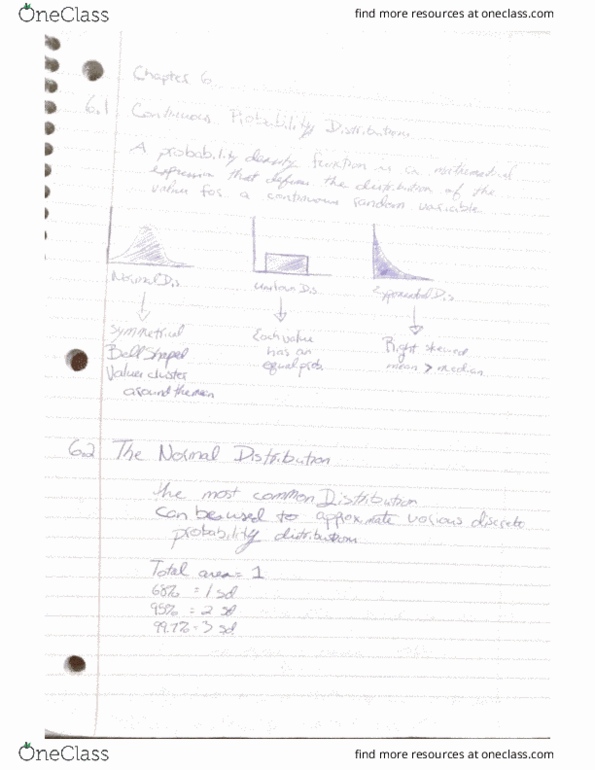 OneClass
find more resources at oneclass.com
Chapter 6
6.1 Continuous Probability Distributions
A probability density function is an mathematical
expression that defines the distribution of the
values for a continuous random variable.
Normal Dis
uniform Dis
Exponential Dis
Symmetrical
Bell Shaped
Values cluster
around the mean
Each value
has an
equal prob.
Right skewed
mean > median
6.2 The Normal Distribution
the most common Distribution
can be used to approximate various discrete
probability distribution
Total area = 1
68% = 1 sd
95% = 2 sd
99.7% = 3 sd
OneClass
find more resources at oneclass.com